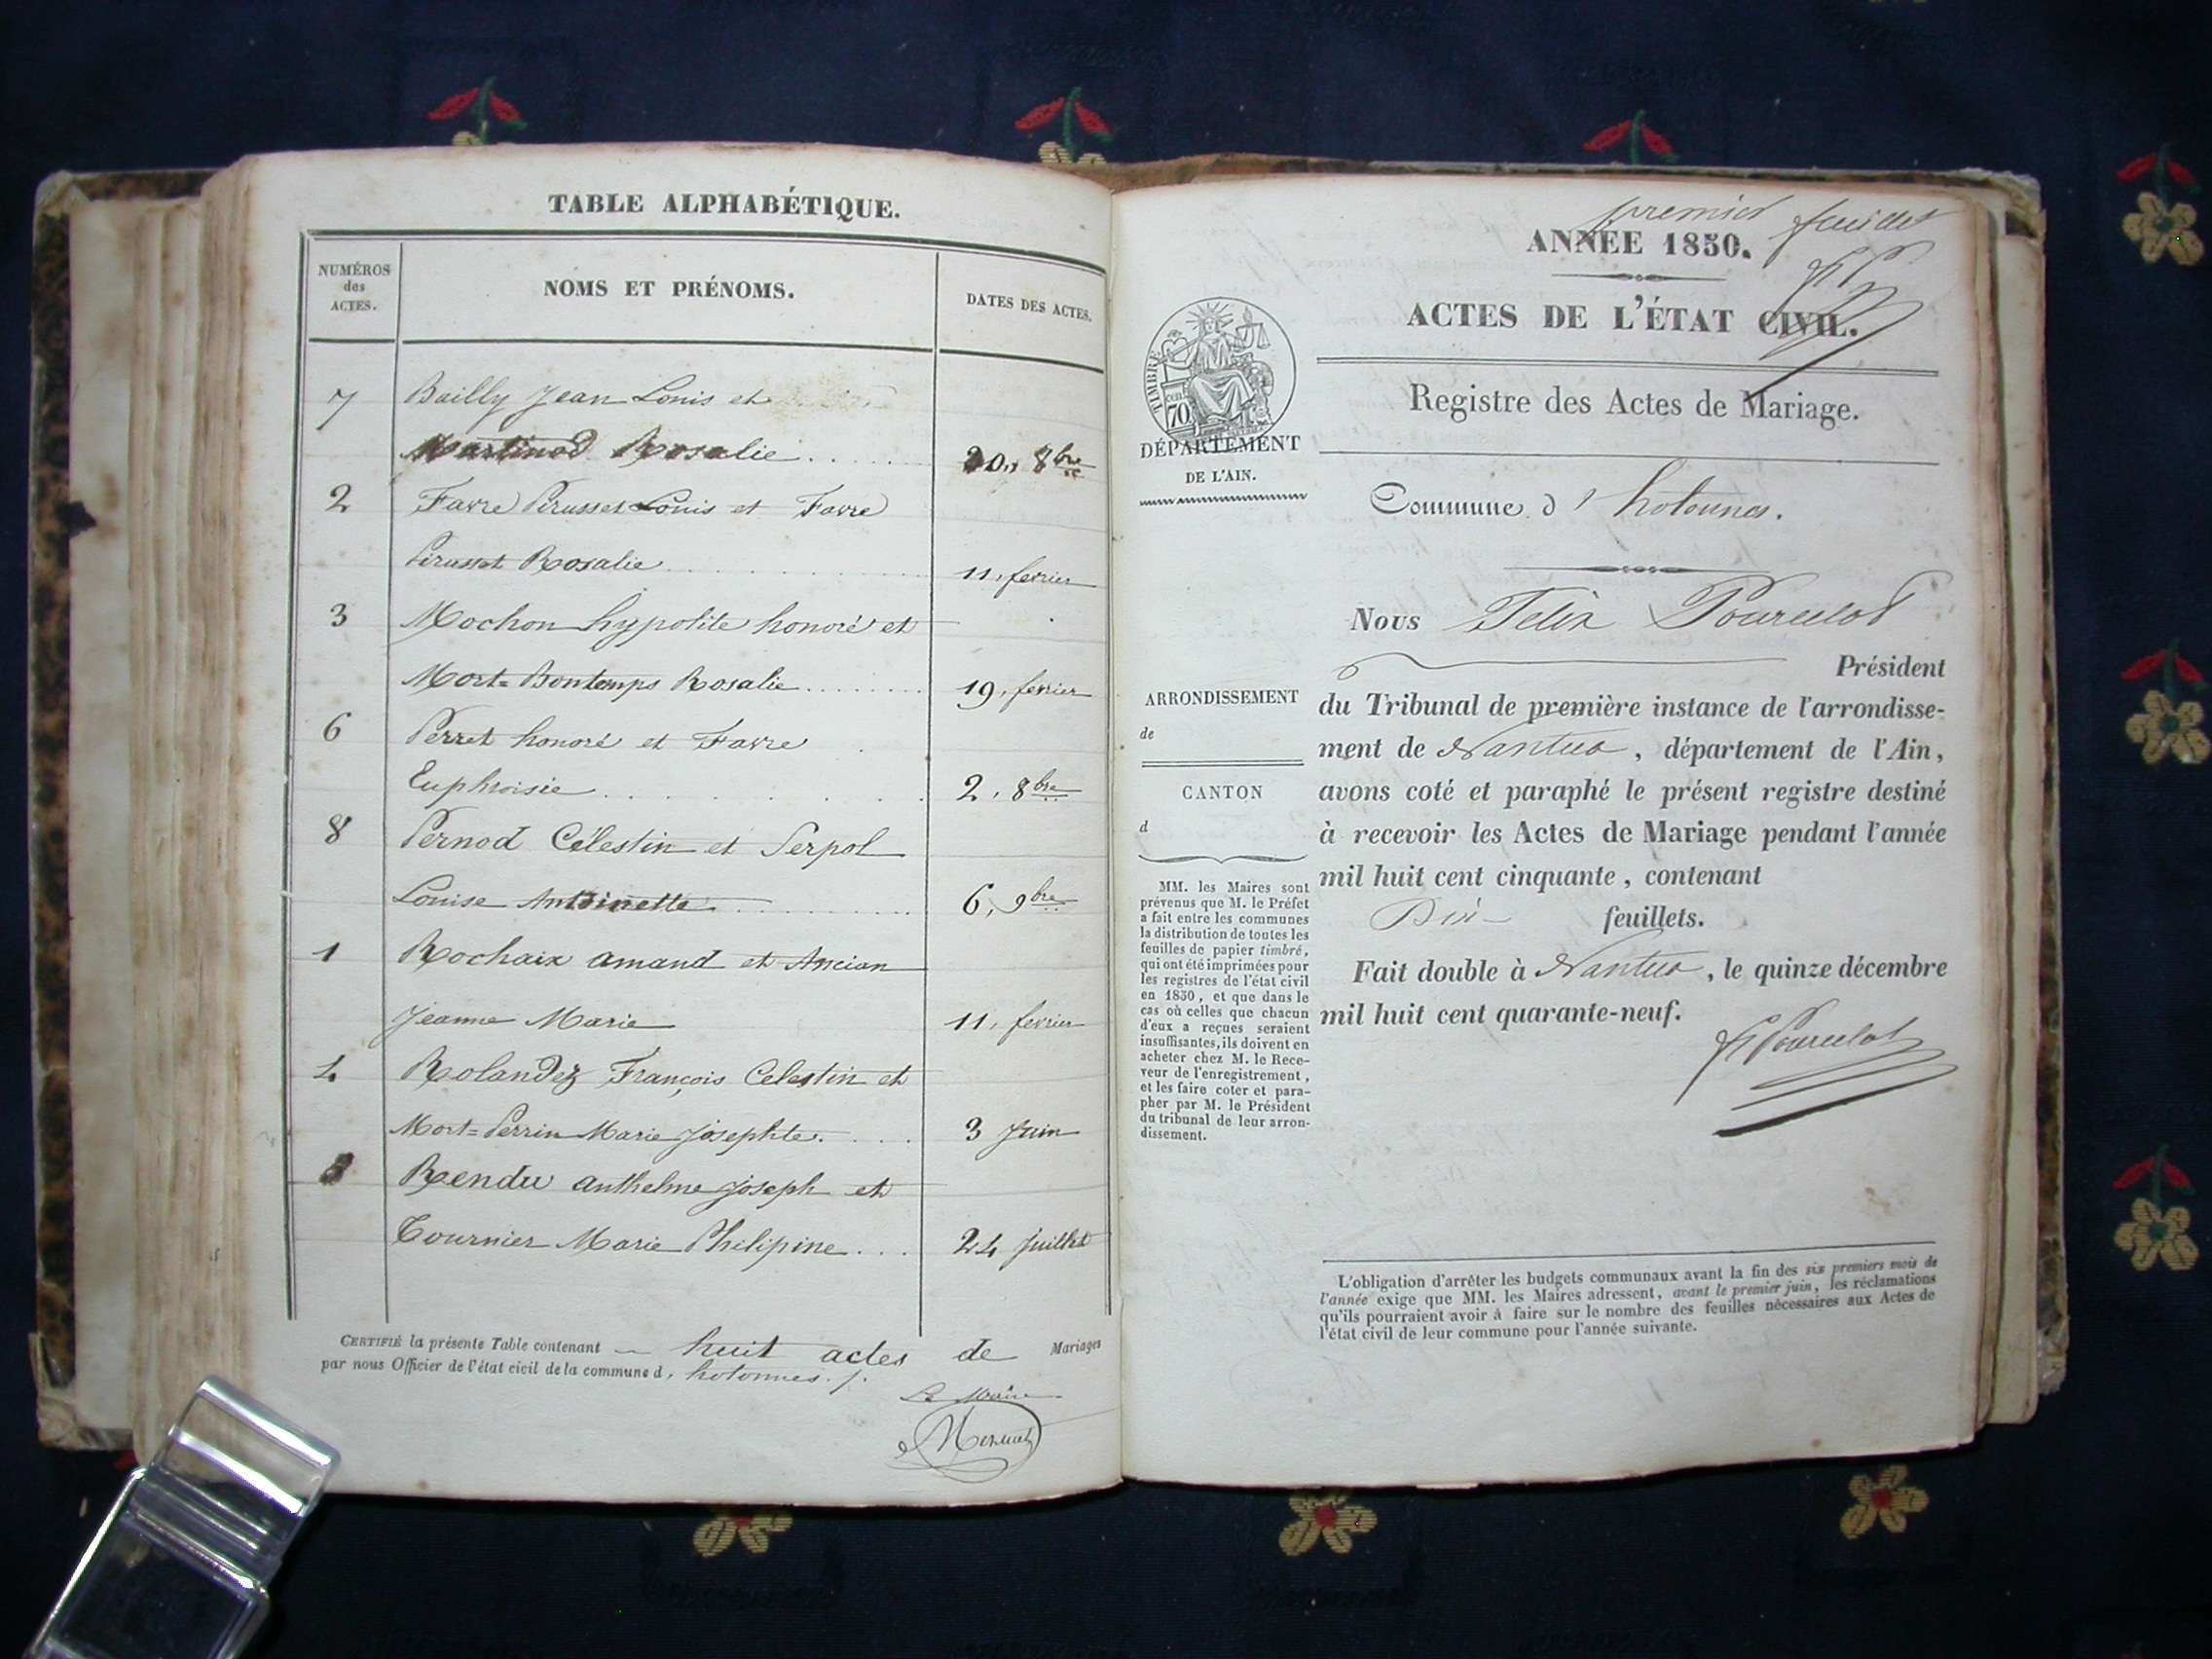 TABLE ALPHABÉTIQUE.
NUMÉROS
des
ACTES.
NOMS ET PRÉNOMS.
DATES DES ACTES.
7 Bailly Jean Louis et
Martinod Rosalie . . . . . 20, 8bre
2 Favre Pirusset Louis et Favre
Pirusset Rosalie . . . . . 11, fevrier
3 Mochon hypolite honoré et
Mort=Bontemps Rosalie . . . . . 19, fevrier
6 Perret honoré et Favre
Euphroisie . . . . . 2, 8bre
8 Pernod Célestin et Serpol
Louise Antoinette . . . . . 6, 9bre
1 Rochaix amand et Ancian
Jeanne Marie 11, fevrier
4 Rolandez François Celestin et
Mort=Perrin Marie Josephte. . . . 3 Juin
Rendu anthelme joseph et
Tournier Marie Philipine . . . 24 Juillet
CERTIFIÉ la présente Table contenant huit actes de Mariages
par nous Officier de l'état civil de la commune d, hotonnes.
Le Maire
premier feuillet
ANNÉE 1850.
ACTES DE L'ÉTAT CIVIL.
Registre des Actes de Mariage.
TIMBRE
cen. 70
DÉPARTEMENT
DE L'AIN.
Commune d'hotonnes.
Nous Felix Pourcelot
Président
du Tribunal de première instance de l'arrondisse-
ment de Nantua, département de l'Ain,
avons coté et paraphé le présent registre destiné
à recevoir les Actes de Mariage pendant l'année
mil huit cent cinquante, contenant
Dix feuillets.
Fait double à Nantua, le quinze décembre
mil huit cent quarante-neuf.
Pourcelot
ARRONDISSEMENT
de
CANTON
d
MM. les Maires sont
prévenus que M. le Préfet
a fait entre les communes
la distribution de toutes les
feuilles de papier timbré,
qui ont été imprimées pour
les registres de l'état civil
en 1850, et que dans le
cas où celles que chacun
d'eux a reçues seraient
insuffisantes, ils doivent en
acheter chez M. le Rece-
veur de l'enregistrement,
et les faire coter et para-
pher par M. le Président
du tribunal de leur arron-
dissement.
L'obligation d'arrêter les budgets communaux avant la fin des six premiers mois de
l'année exige que MM. les Maires adressent, avant le premier juin, les réclamations
qu'ils pourraient avoir à faire sur le nombre des feuilles nécessaires aux Actes de
l'état civil de leur commune pour l'année suivante.